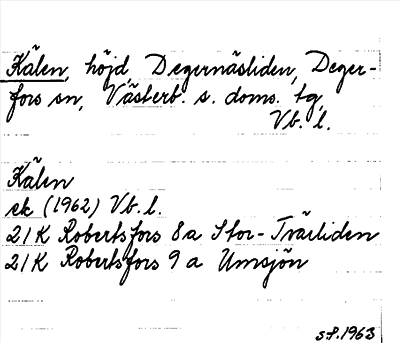 Kälen, höjd, Degernäsliden, Deger-
fors sn, Västerb. s. doms. tg,
Vb. l.
Kälen
ek (1962) Vb. l.
21K Robertsfors 8a Stor-Tvärliden
21K Robertsfors 9a Umsjön
st.1963